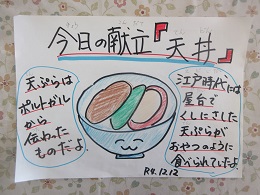 今日の献立『天丼』
天ぷらは
ポルトガル
から
伝わった
ものだよ
江戸時代には
屋台で
くしにさした
天ぷらが
おやつのように
食べられていたよ。
R4.12.12